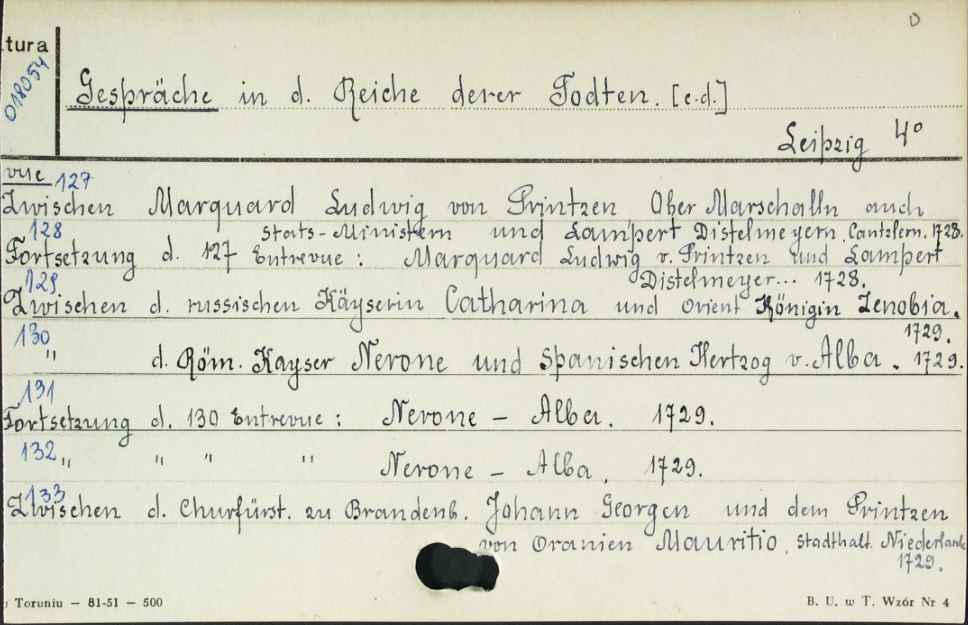 D
tura
018054
Gespräche in d. Reiche derer Todten. [e.d.]
Leipzig 4°
vue 127
Zwischen Marquard Ludwig von Printzen Ober Marschalln auch
Stats-Ministern und Lampert Distelmeyern Cantzlern. 1728.
128
Fortsetzung d. 127 Entrevue: Marquard Ludwig v. Printzen und Lampert
Distelmeyer... 1728.
129
Zwischen d. russischen Käyserin Catharina und Orient Königin Zenobia.
1729.
130
" d. Röm. Kayser Nerone und Spanischen Hertzog v. Alba. 1729.
131
Fortsetzung d. 130 Entrevue: Nerone - Alba. 1729.
132
" " " " Nerone - Alba. 1729.
133
Zwischen d. Churfürst. zu Brandenb. Johann Georgen und dem Printzen
von Oranien Mauritio, Stadthalt. Niederland
1729.
Toruniu — 81-51 — 500
B. U. w T. Wzór Nr 4